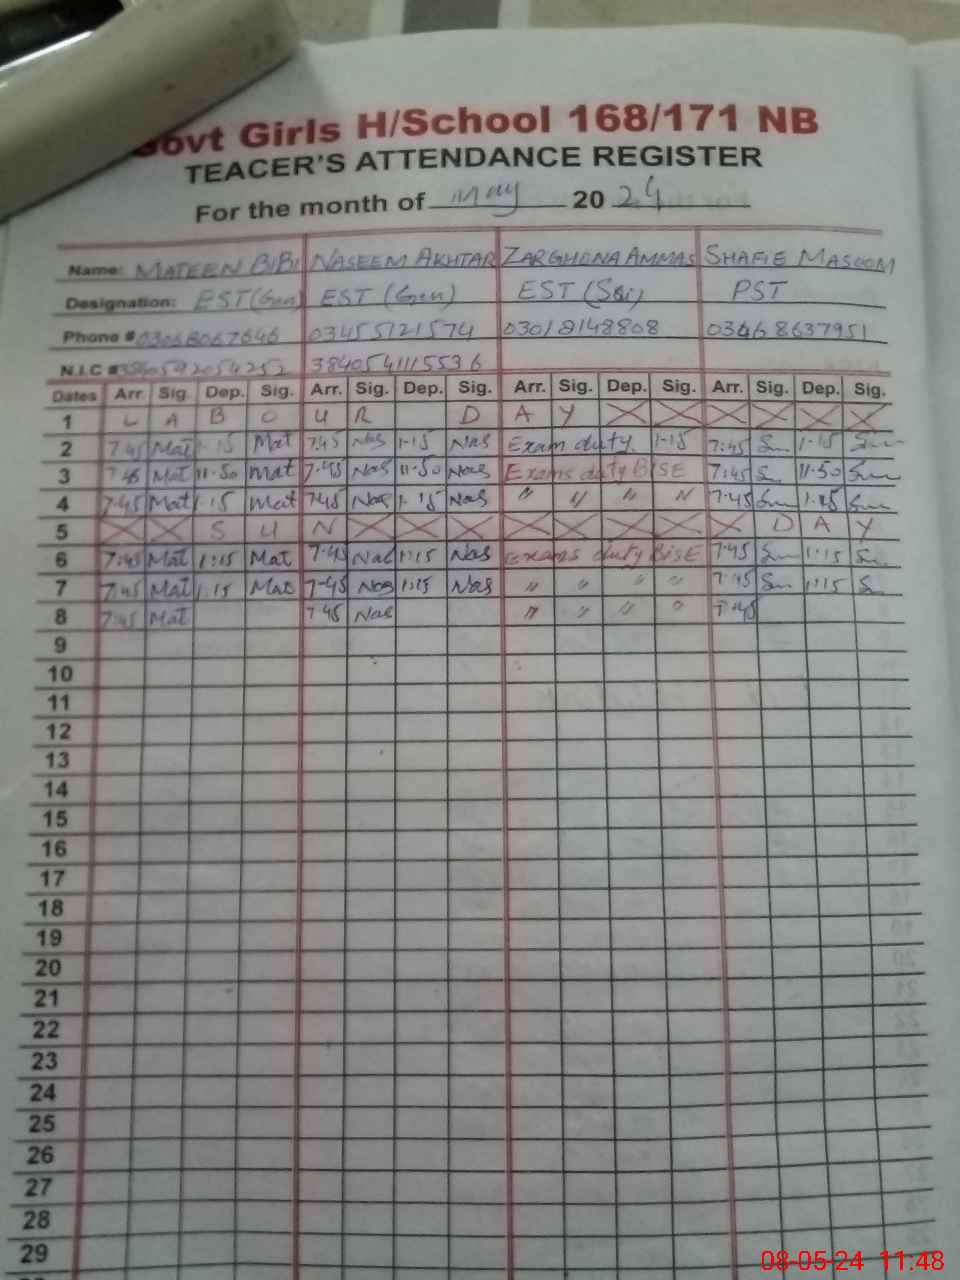 Govt Girls H/School 168/171 NB
TEACER'S ATTENDANCE REGISTER
For the month of May 2024
Name: MATEEN BIBI NASEEM AKHTAR ZARGHONA AMMAS SHAFIE MASOOM
Designation: EST (Gen) EST (Gen) EST (Sci) PST
Phone # 03068067646 03455121574 03018148808 03468637951
N.I.C # 3840592054252 3840541115536
Dates Arr. Sig. Dep. Sig. Arr. Sig. Dep. Sig. Arr. Sig. Dep. Sig. Arr. Sig. Dep. Sig.
1 L A B O U R D A Y
2 7:45 Mat 1:15 Mat 7:45 Nas 1:15 Nas Exam duty 1:15 7:45 1:15
3 7:45 Mat 11:50 Mat 7:45 Nas 11:50 Nas Exams duty BISE 7:45 11:50
4 7:45 Mat 1:15 Mat 7:45 Nas 1:15 Nas " " " " 7:45 1:15
5 S U N D A Y
6 7:45 Mat 1:15 Mat 7:45 Nas 1:15 Nas Exams duty BISE 7:45 1:15
7 7:45 Mat 1:15 Mat 7:45 Nas 1:15 Nas " " " " 7:45 1:15
8 7:45 Mat 7:45 Nas " " " " 7:45
9
10
11
12
13
14
15
16
17
18
19
20
21
22
23
24
25
26
27
28
29
08-05-24 11:48